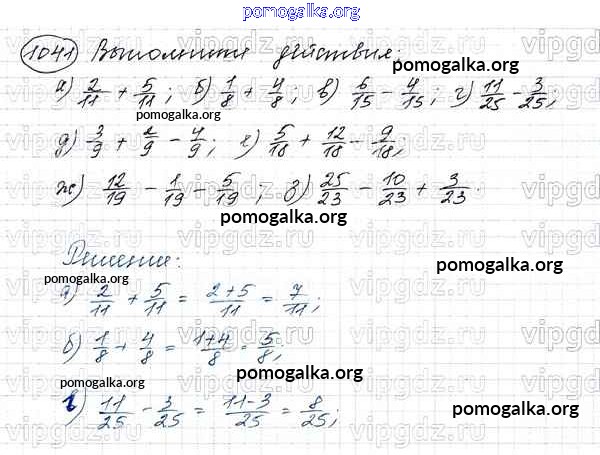 pomogalka.org
1041 Выполните действия:
а) 2/11 + 5/11; б) 1/8 + 4/8; в) 6/15 - 4/15; г) 11/25 - 3/25;
pomogalka.org
pomogalka.org
д) 3/9 + 2/9 - 4/9; е) 5/18 + 12/18 - 9/18;
ж) 12/19 - 1/19 - 5/19; з) 25/23 - 10/23 + 3/23.
pomogalka.org
Решение:
pomogalka.org
pomogalka.org
а) 2/11 + 5/11 = 2+5/11 = 7/11;
б) 1/8 + 4/8 = 1+4/8 = 5/8;
pomogalka.org
pomogalka.org
в) 11/25 - 3/25 = 11-3/25 = 8/25;
pomogalka.org
vipgdz.ru